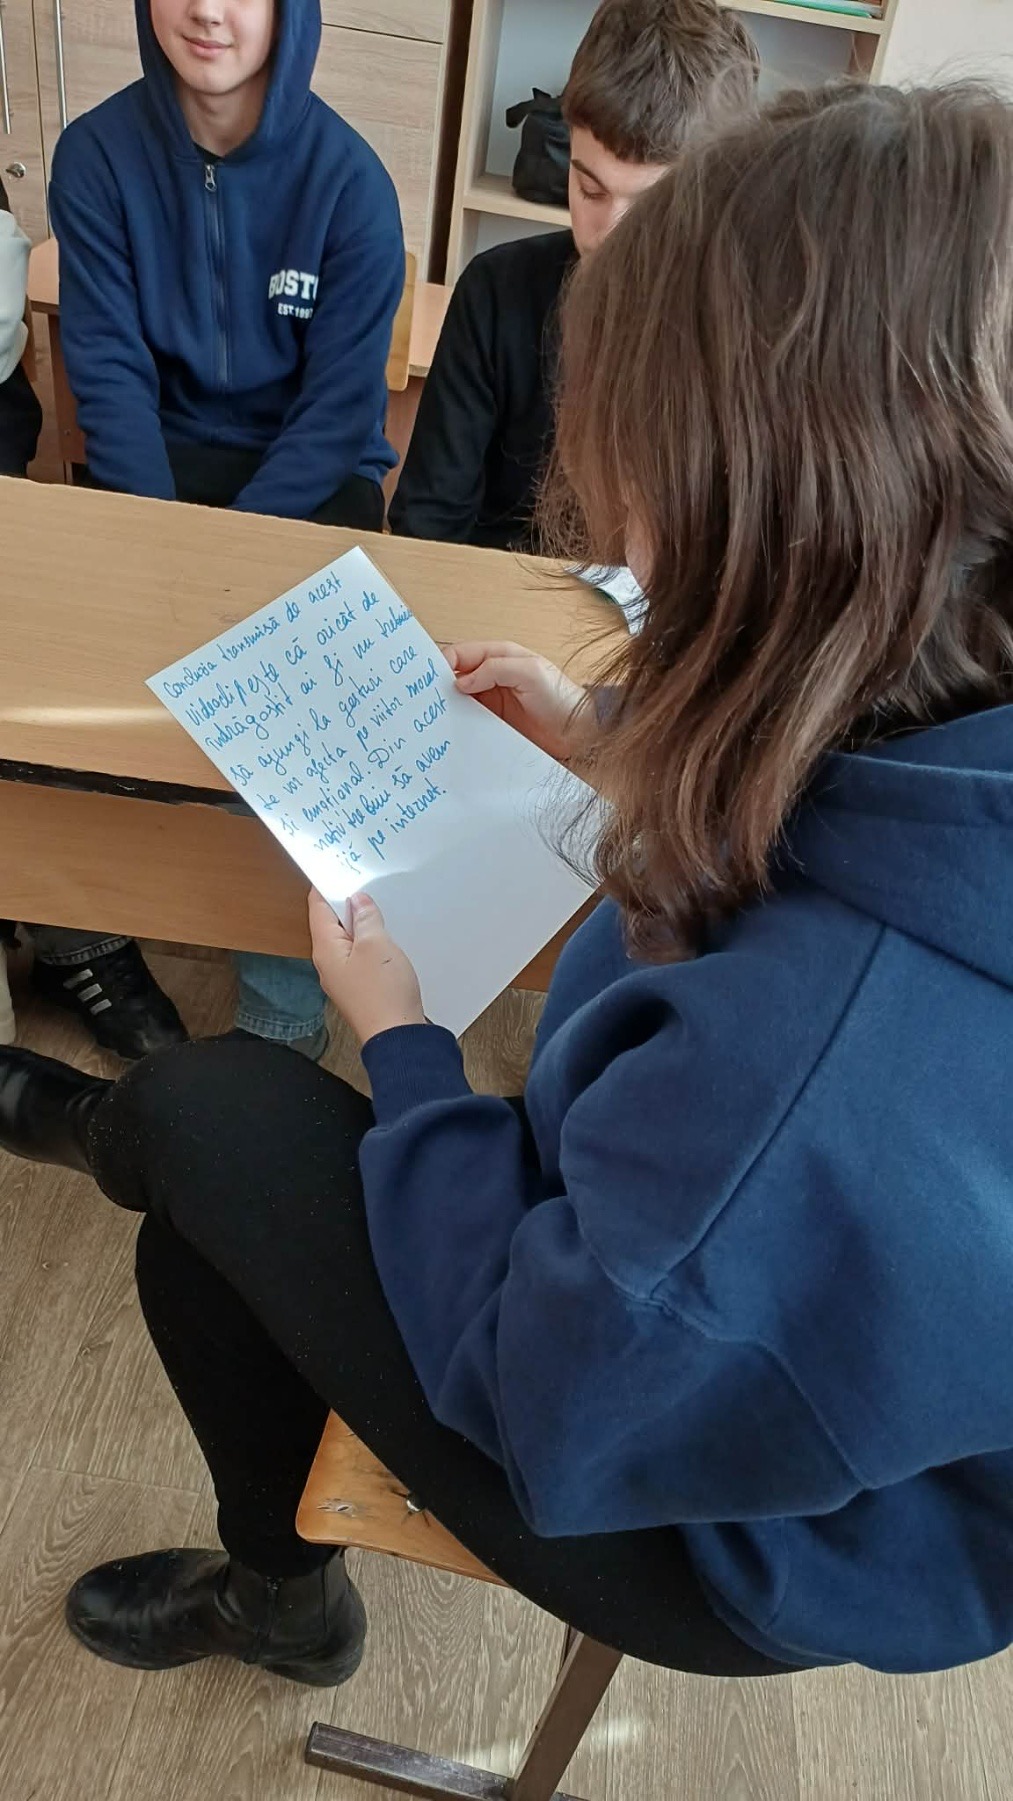 BOST
EST.199
Concluzia transmisă de acest
videoclip este că oricât de
îndrăgostit ai fi nu trebuie
să ajungi la gesturi care
te vor afecta pe viitor moral
și emoțional. Din acest
motiv trebuie să avem
grijă pe internet.